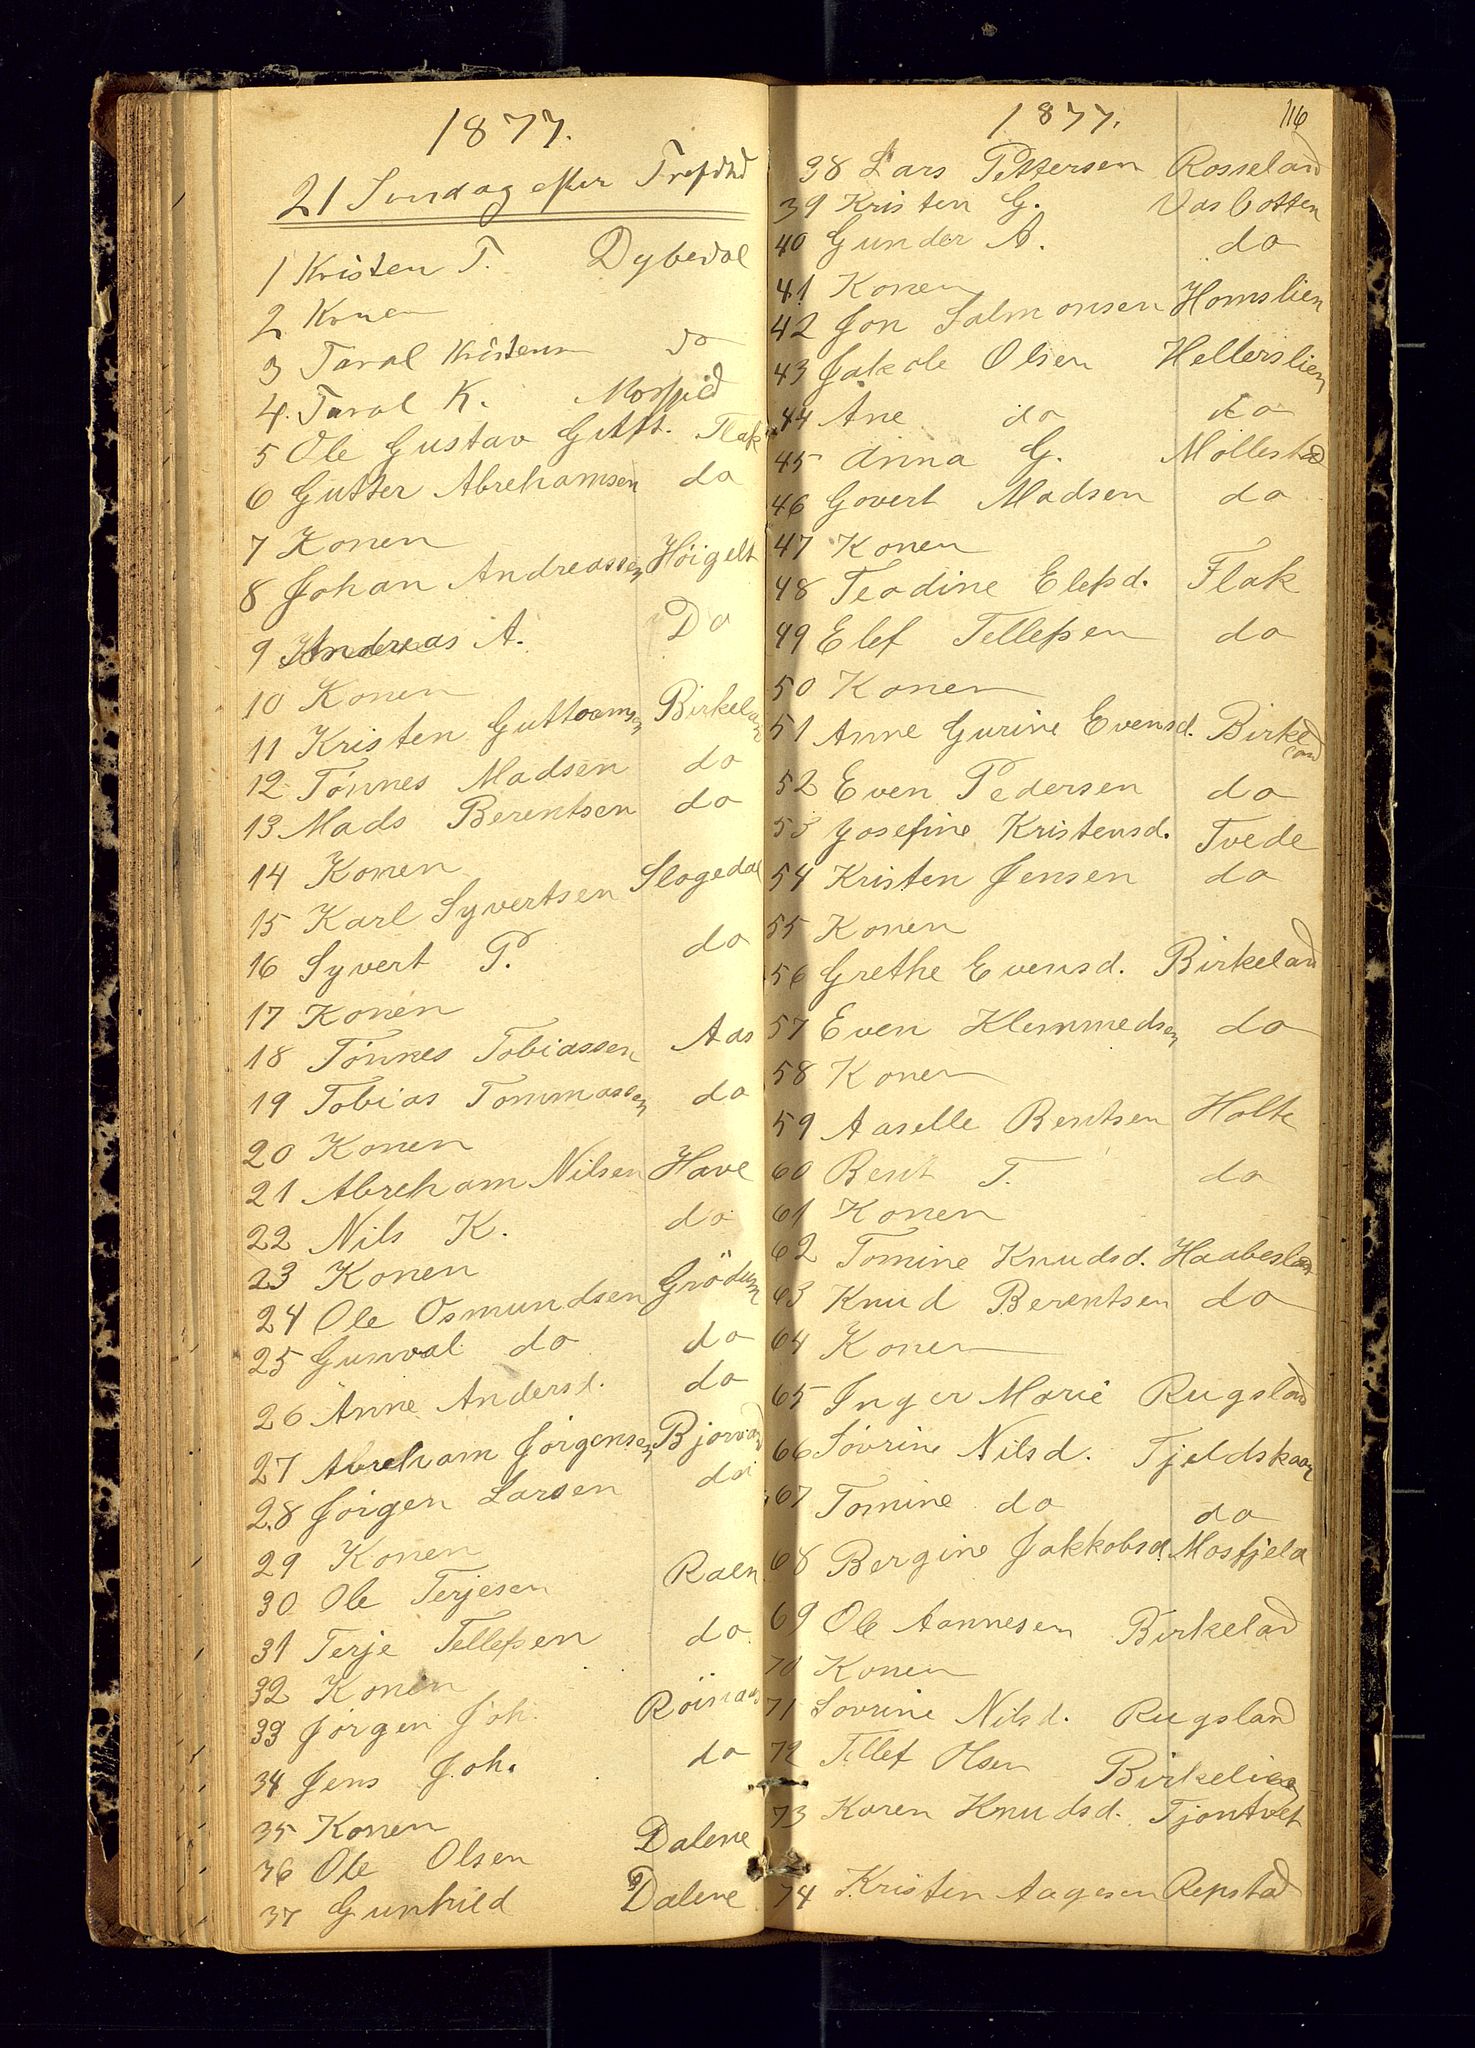 1877.
21 Søndag efter Trefdhd
1 Kristen T. Dybedal
2 Konen
3 Taral Kristensen do
4. Taral K. Mosfjeld
5 Ole Gustav Gutt. Flak
6 Gutter Abrehamsen do
7 Konen
8 Johan Andreassen Höigelt
9 Andreas A. Do
10 Konen
11 Kristen Guttormsen Birkeland
12 Tönnes Madsen do
13 Mads Berentsen do
14 Konen
15 Karl Syvertsen Slogedal
16 Syvert P. do
17 Konen
18 Tönnes Tobiassen Aas
19 Tobias Tommassen do
20 Konen
21 Abreham Nilsen Have
22 Nils K. do
23 Konen
24 Ole Osmundsen Grödum
25 Gunval do do
26 Anne Andersd. do
27 Abreham Jørgensen Bjorvand
28 Jørgen Larsen do
29 Konen
30 Ole Terjesen Raen
31 Terje Tellefsen do
32 Konen
33 Jørgen Joh. Röisnaas
34 Jens Joh. do
35 Konen
36 Ole Olsen Dalene
37 Gunhild Dalene
1877. 116
38 Lars Pettersen Rosseland
39 Kristen G. Vasbotten
40 Gunder A. do
41 Konen
42 Jon Salmonsen Homslien
43 Jakob Olsen Hellerslien
44 Ane do do
45 Anna G. Mollestad
46 Govert Madsen do
47 Konen
48 Teodine Elefsd. Flak
49 Elef Tellefsen do
50 Konen
51 Anne Gurine Evensd. Birkeland
52 Even Pedersen do
53 Josefine Kristensd. Tvede
54 Kristen Jensen do
55 Konen
56 Grethe Evensd. Birkeland
57 Even Klemmedsen do
58 Konen
59 Aaselle Bentsen Holte
60 Bent T. do
61 Konen
62 Tomine Knudsd. Haabesland
63 Knud Berentsen do
64 Konen
65 Inger Marie Rugsland
66 Sövrine Nilsd. Tjeldskaar
67 Tomine do do
68 Bergine Jakkobsd. Mosfjeld
69 Ole Aannesen Birkeland
70 Konen
71 Sovrine Nilsd. Rugsland
72 Tellef Olsen Birkelien
73 Karen Knudsd. Tjontvet
74 Kristen Aagesen Repstad